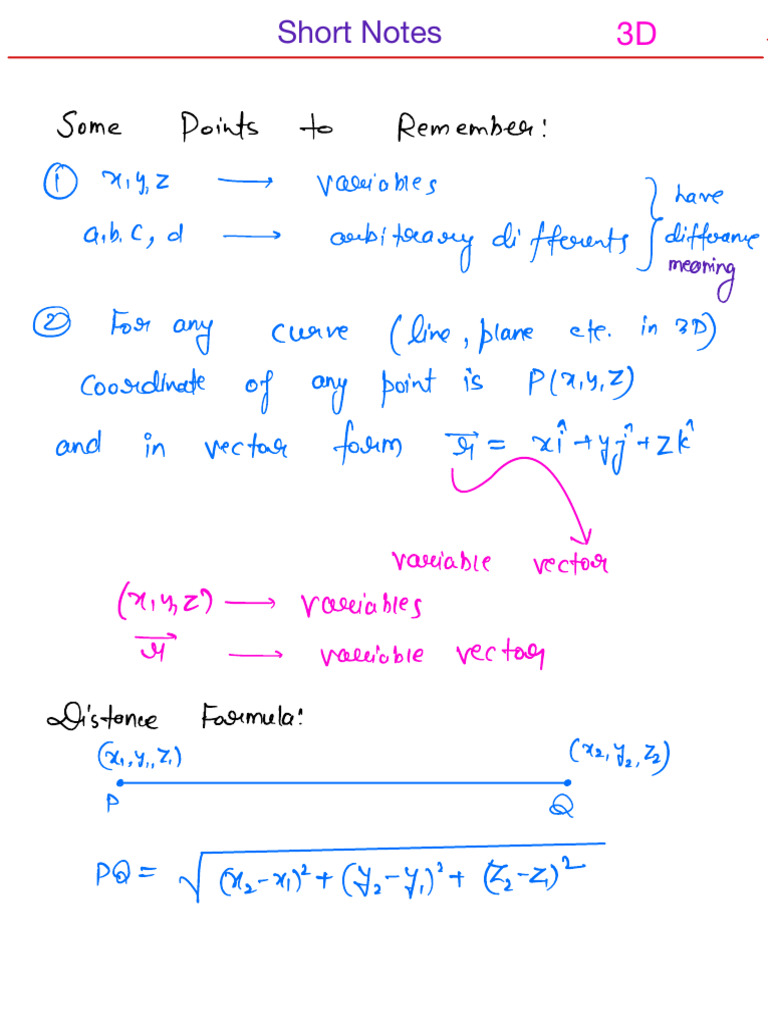 Short Notes 3D
Some Points to Remember:
① x, y, z → variables
a, b, c, d → arbitrary differents } have differance meaning
② For any curve (line, plane etc. in 3D)
Coordinate of any point is P(x, y, z)
and in vector form r⃗ = xî + yĵ + zk̂
variable vector
(x, y, z) → variables
r⃗ → variable vector
Distance Formula:
(x₁, y₁, z₁) (x₂, y₂, z₂)
P Q
PQ = √((x₂-x₁)² + (y₂-y₁)² + (z₂-z₁)²)